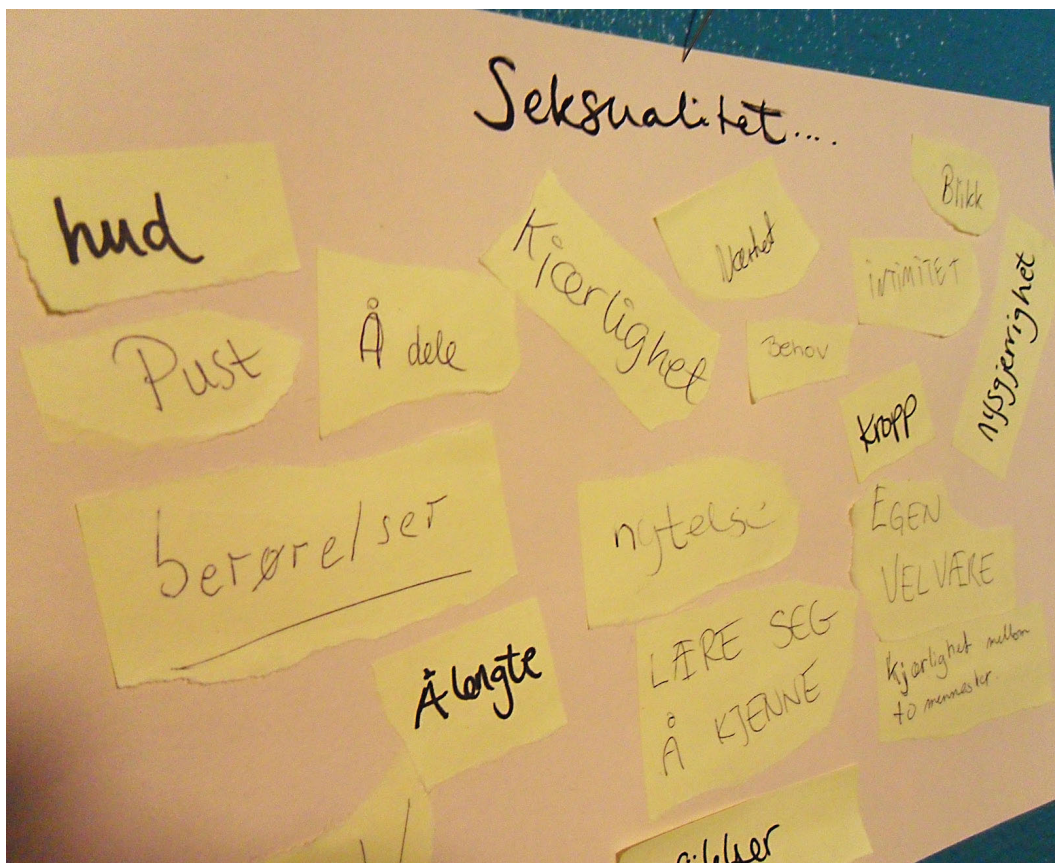 Seksualitet....
hud
Kjærlighet
Nærhet
Blikk
INTIMITET
nysgjerrighet
Pust
Å dele
Behov
Kropp
berørelser
nytelse
EGEN
VELVÆRE
Å lengte
LÆRE SEG
Å KJENNE
Kjærlighet mellom
to mennesker.